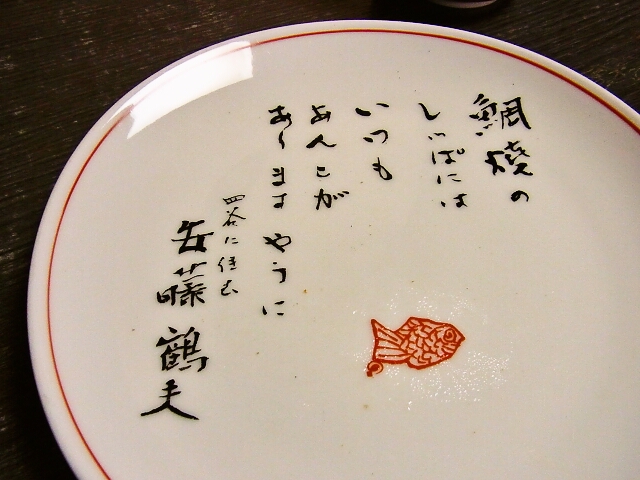 鯛焼の
しっぽには
いつも
あんこが
ありますやうに
四谷に住む
安藤鶴夫